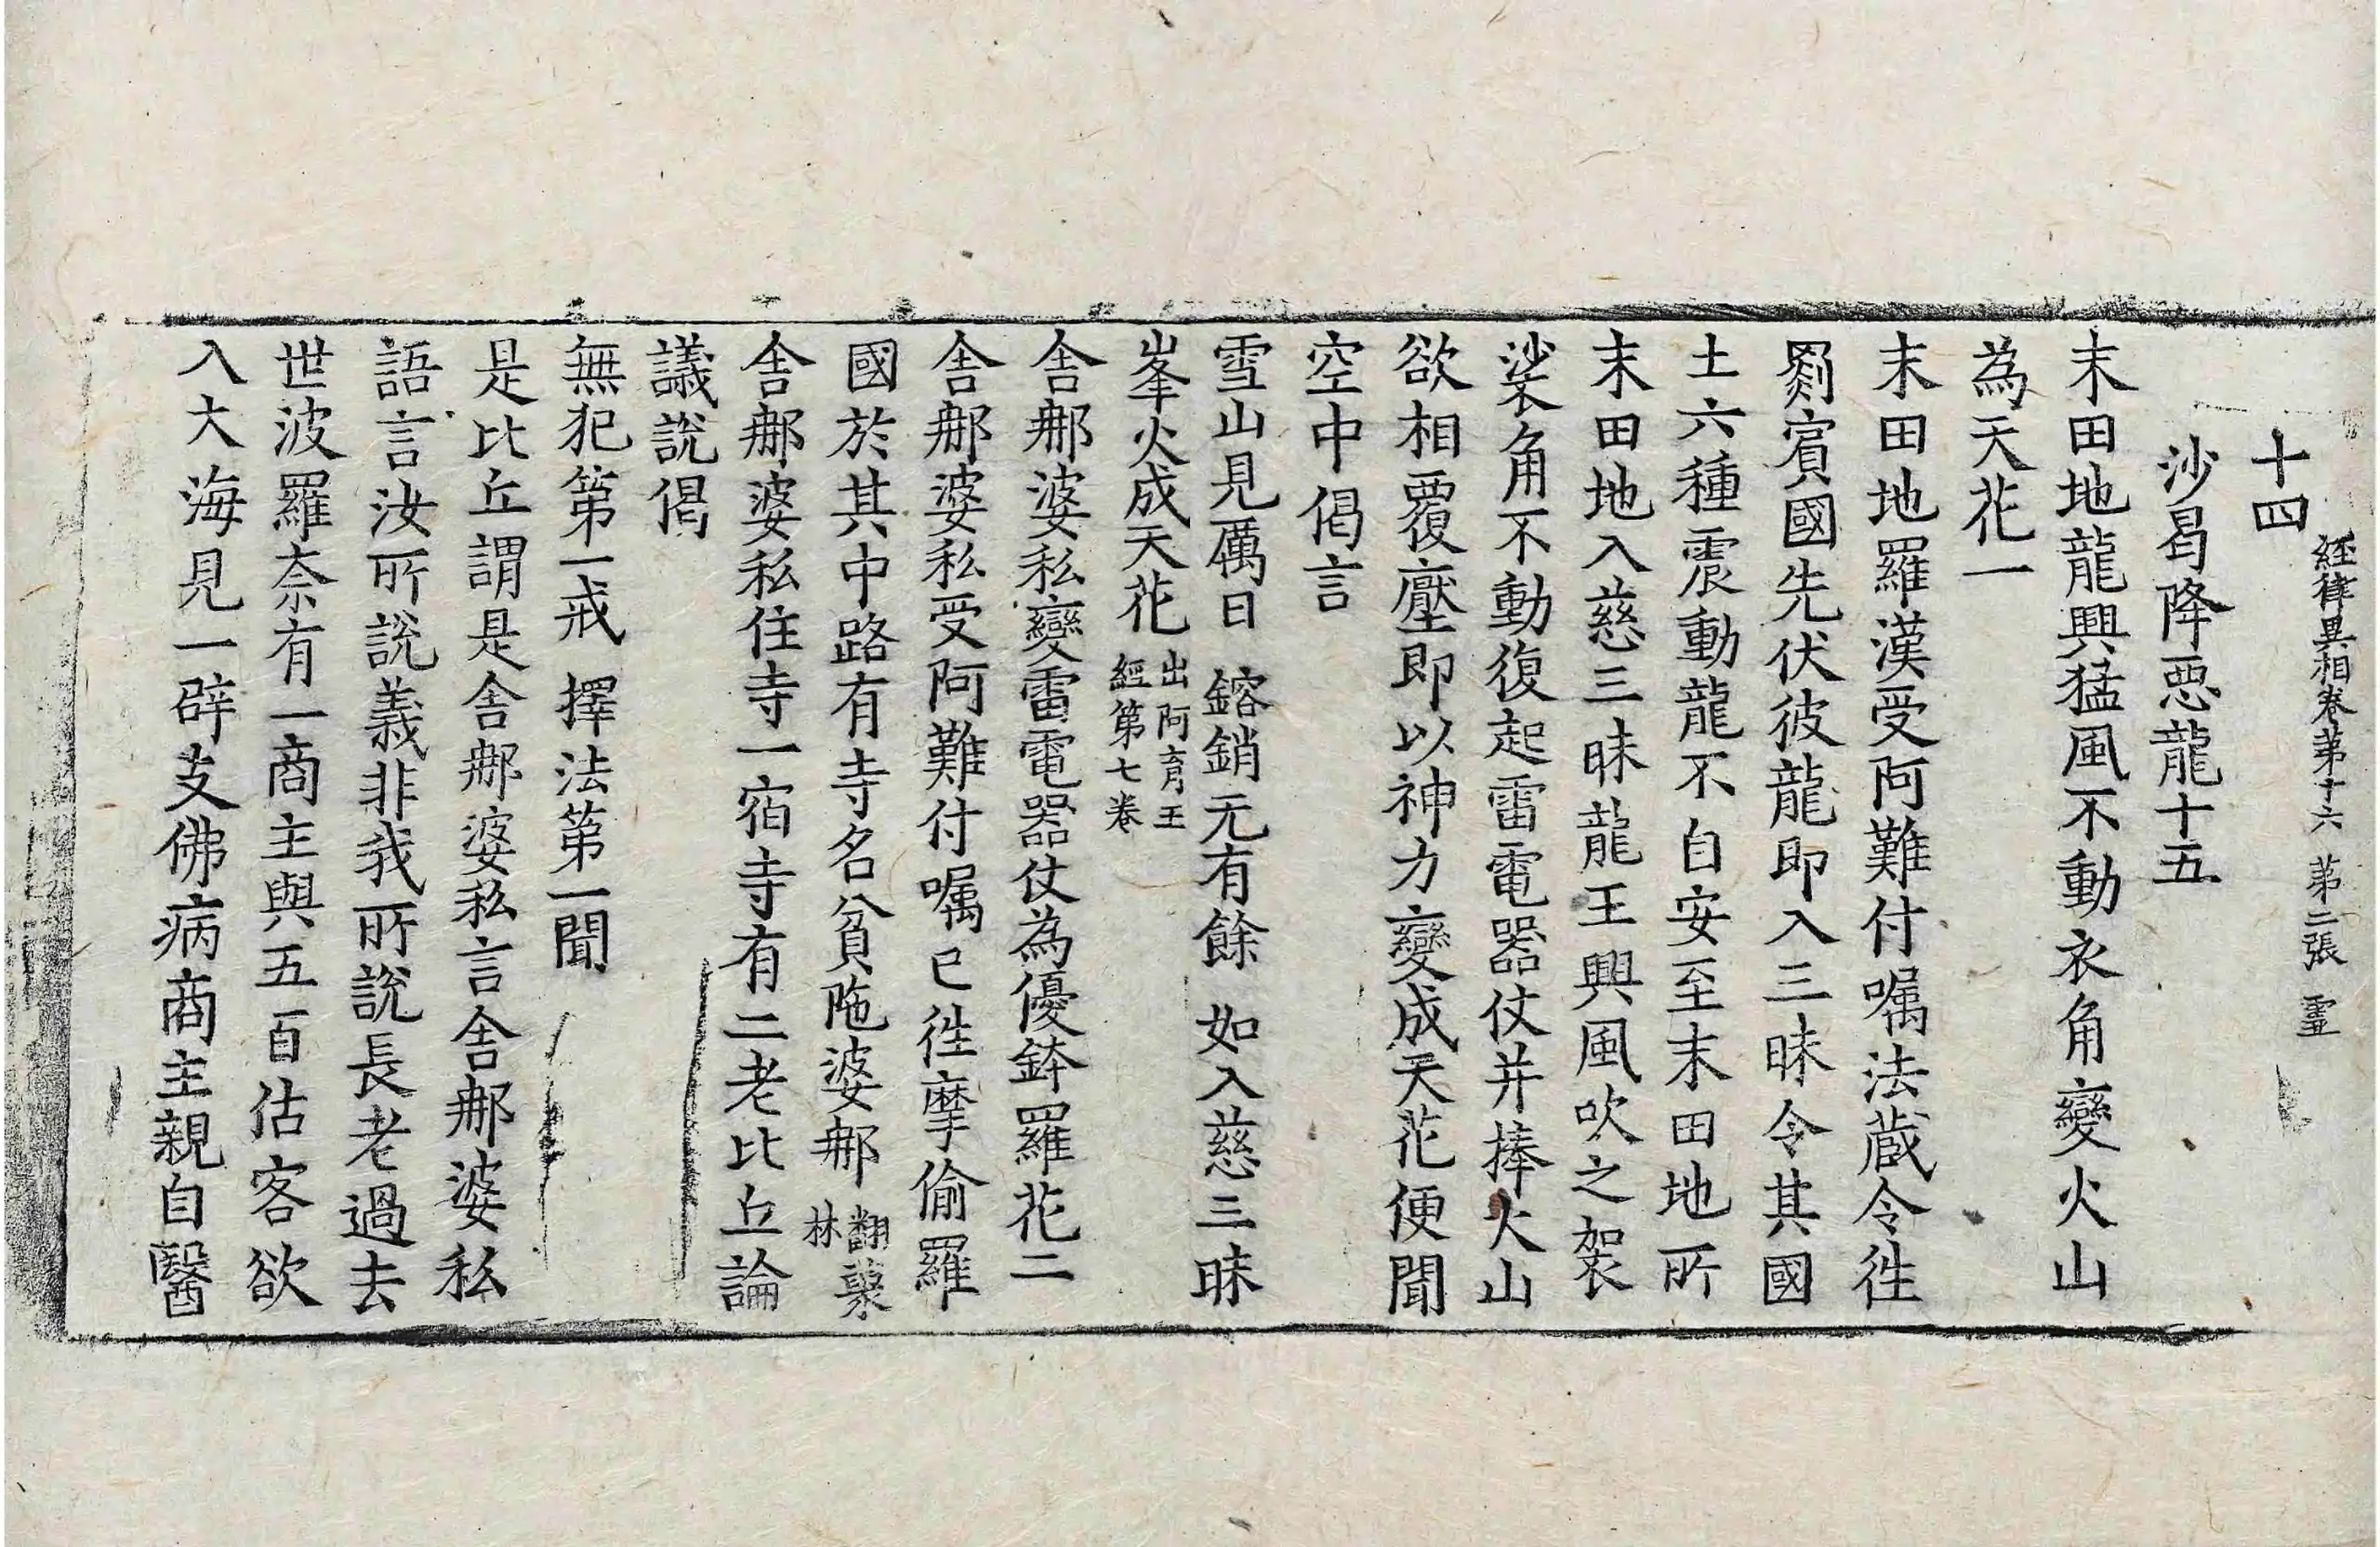 經律異相卷第十六 第二張 靈
十四
沙曷降惡龍十五
末田地龍興猛風不動衣角變火山
為天花一
末田地羅漢受阿難付囑法蔵令徃
罽賓國先伏彼龍即入三昧令其國
土六種震動龍不自安至末田地所
末田地入慈三昧龍王興風吹之袈
裟角不動復起雷電器仗并捧火山
欲相覆壓即以神力變成天花便聞
空中偈言
雪山見厲日 鎔銷无有餘 如入慈三昧
峯火成天花出阿育王經第七卷
舍那婆私變雷電器仗為優鉢羅花二
舍那婆私受阿難付囑已徃摩偷羅
國於其中路有寺名貧陁婆那翻藂林
舍那婆私住寺一宿寺有二老比丘論
議說偈
無犯第一戒 擇法第一聞
是比丘謂是舍那婆私言舍那婆私
語言汝所說義非我所說長老過去
世波羅奈有一商主與五百估客欲
入大海見一辟支佛病商主親自醫